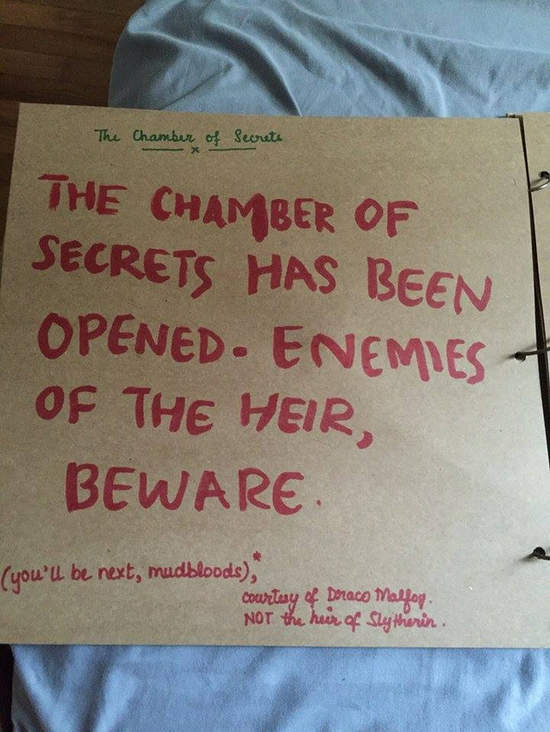 The Chamber of Secrets
THE CHAMBER OF
SECRETS HAS BEEN
OPENED. ENEMIES
OF THE HEIR,
BEWARE.
(you'll be next, mudbloods),*
courtesy of Draco Malfoy.
NOT the heir of Slytherin.